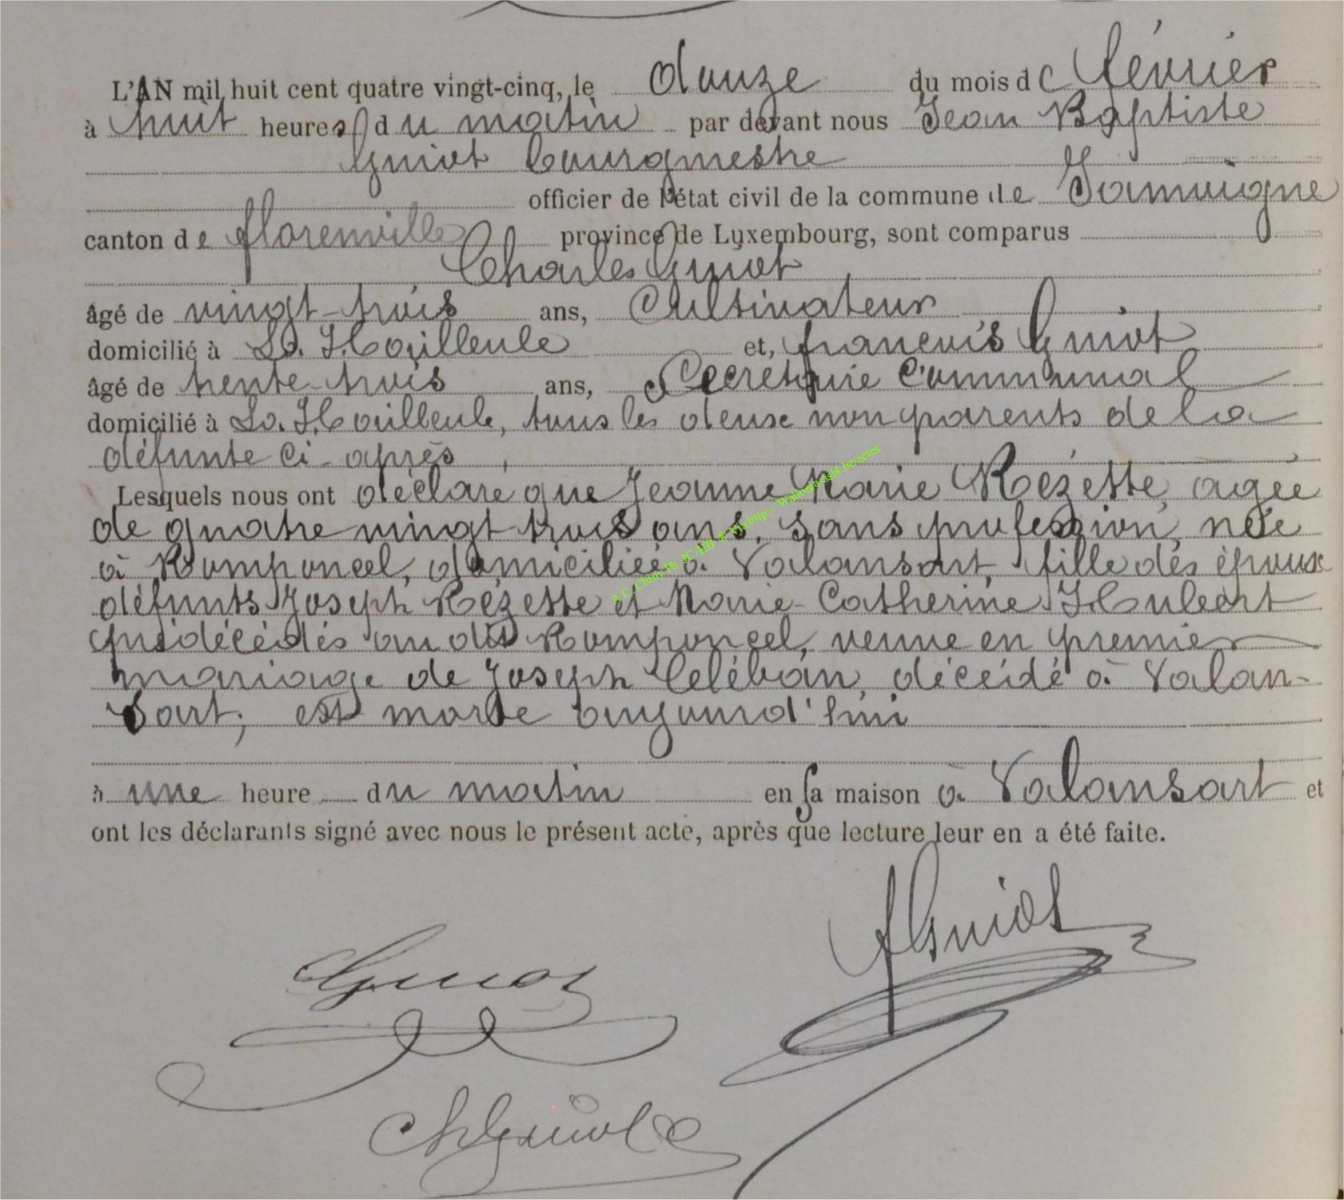 L'AN mil huit cent quatre vingt-cinq, le douze du mois de février
à huit heures du matin par devant nous Jean Baptiste
Guiot bourgmestre
officier de l'état civil de la commune de Jamoigne
canton de florenville province de Luxembourg, sont comparus
Charles Guiot
âgé de vingt-trois ans, Cultivateur
domicilié à La Houilleule et, françois Guiot
âgé de trente-trois ans, Secrétaire Communal
domicilié à La Houilleule, tous les deux non parents de la
défunte ci-après,
Lesquels nous ont déclaré que Jeanne Marie Rézette, agée
de quatre vingt trois ans, sans profession, née
à Romponcel, domiciliée à Valansart, fille des époux
défunts Joseph Rézette et Marie-Catherine
décédés au dit Romponcel, veuve en premier
mariage de Joseph décédé à Valan-
sart, est morte aujourd'hui
à une heure du matin en sa maison à Valansart et
ont les déclarants signé avec nous le présent acte, après que lecture leur en a été faite.
Guiot
Guiot